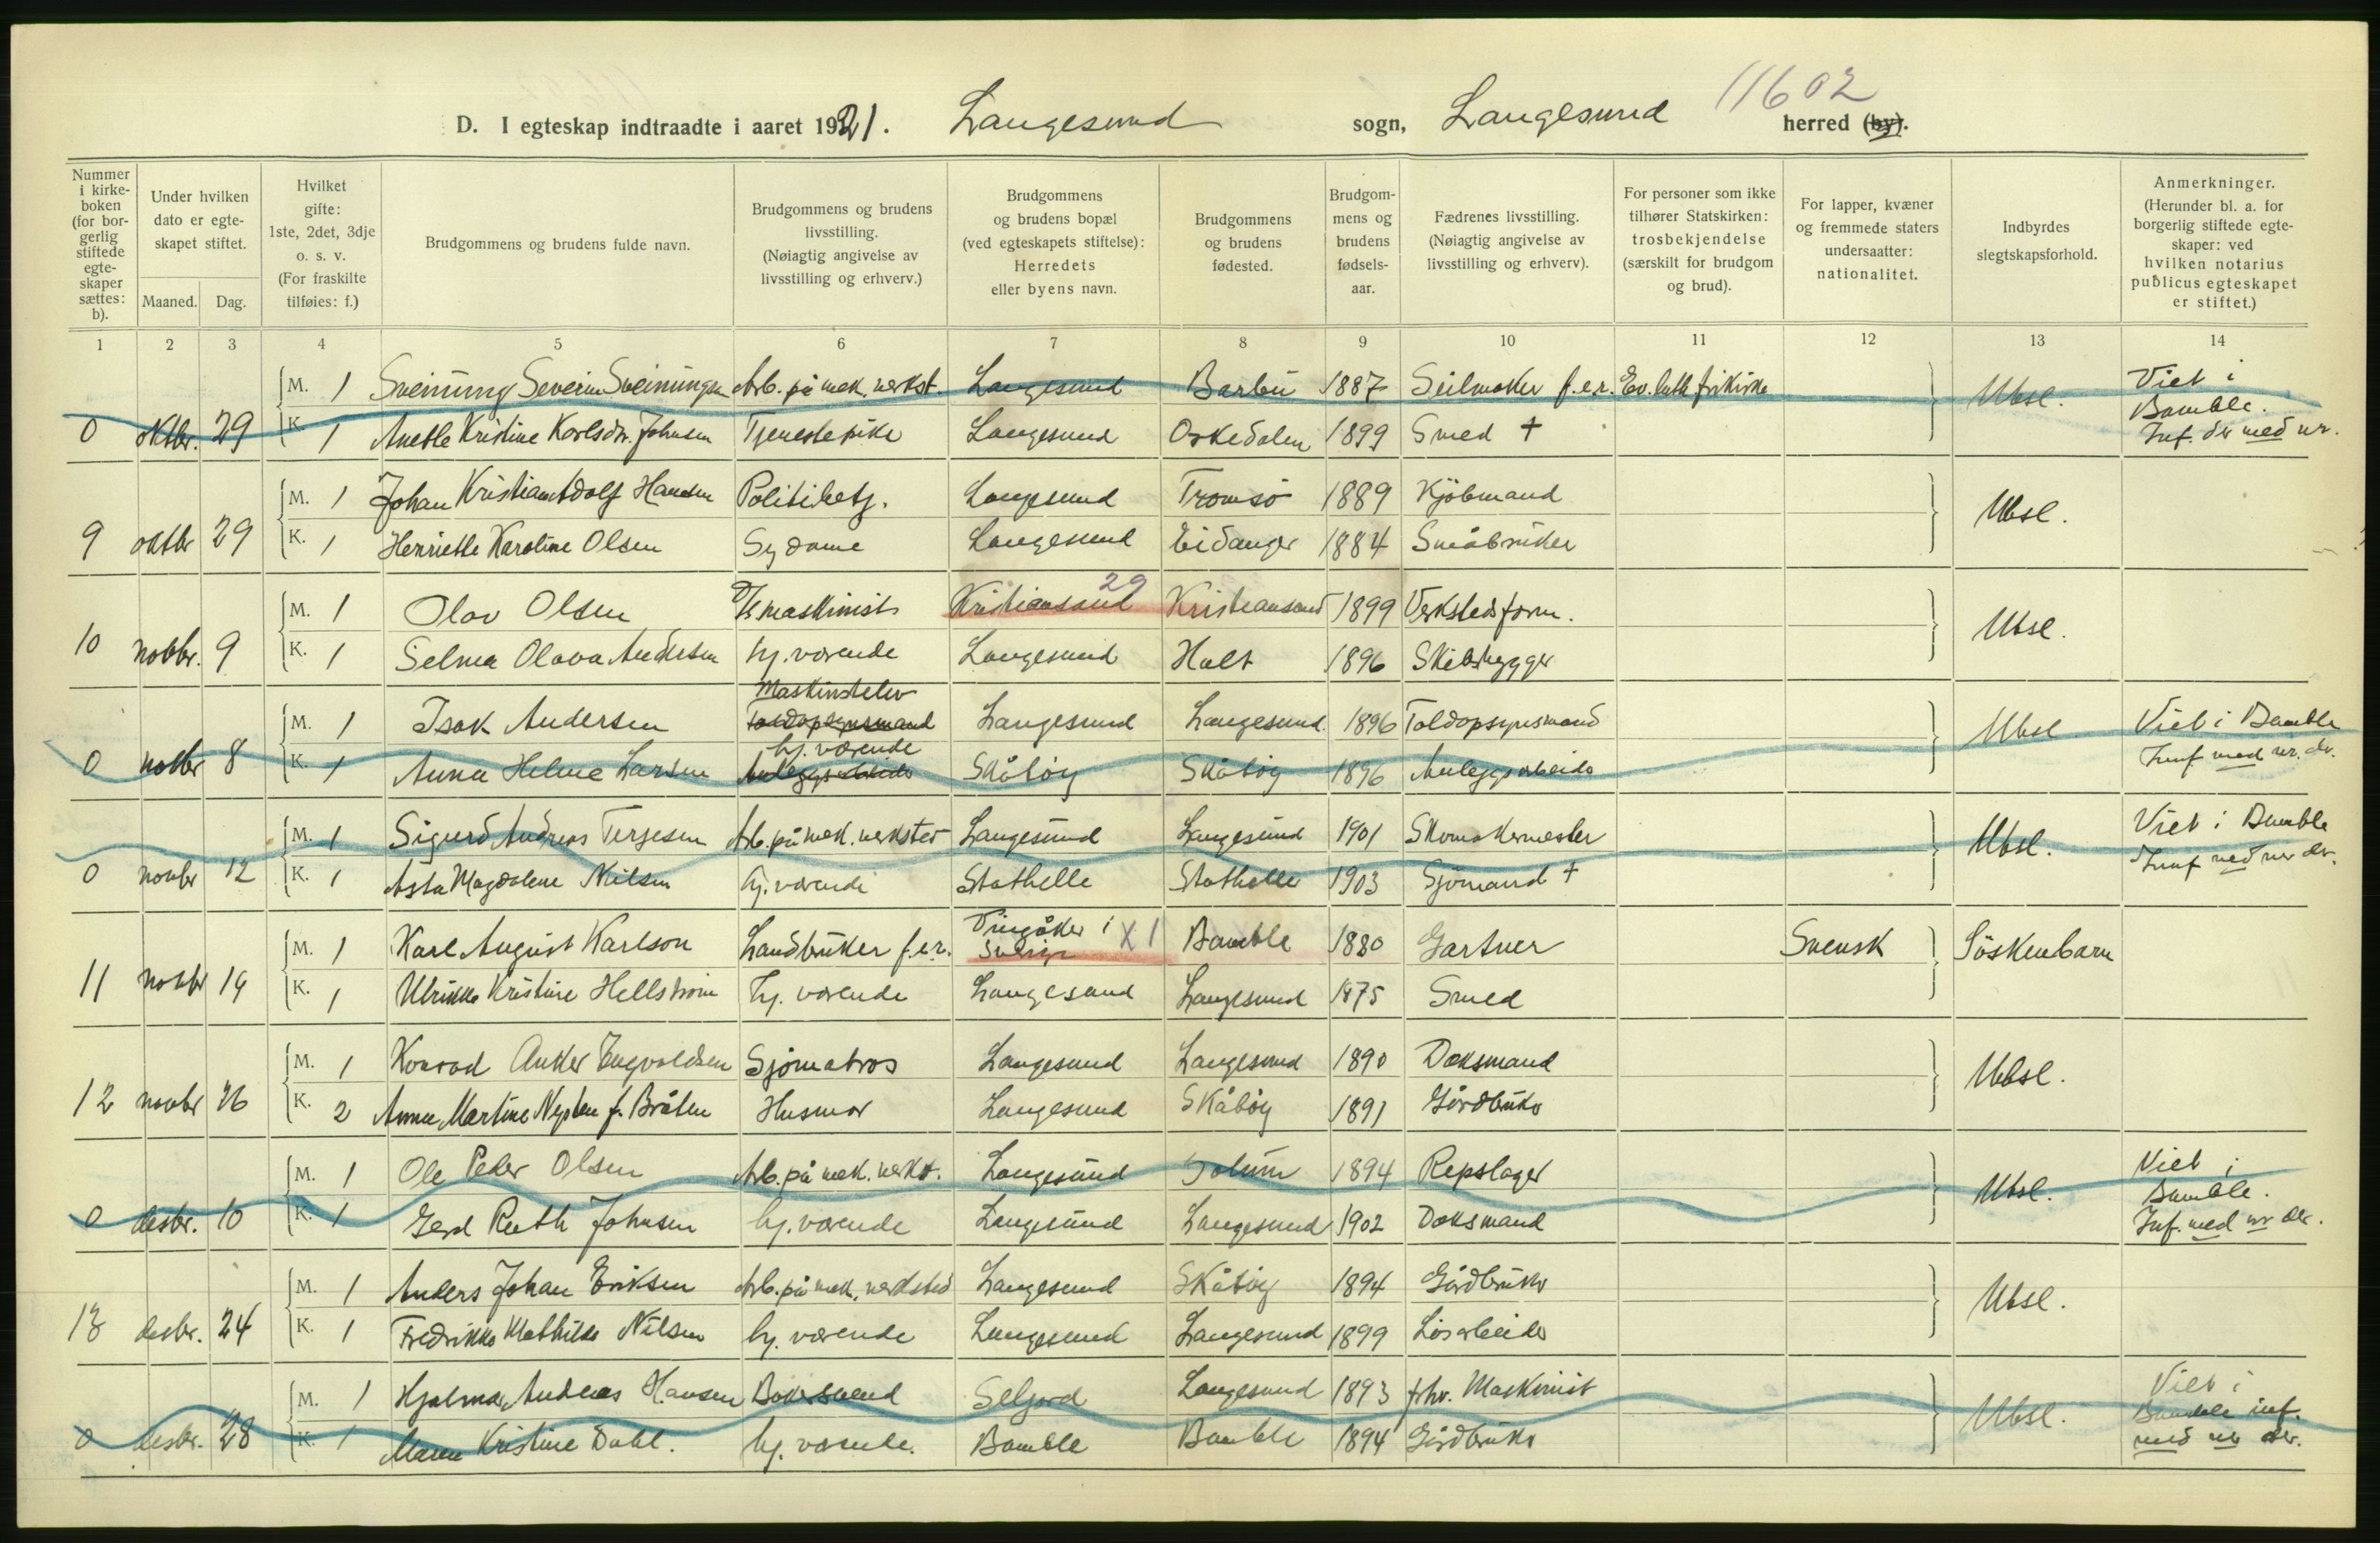 11602
D. I egteskap indtraadte i aaret 1921. Langesund sogn, Langesund herred (by).
Nummer i kirke-boken (for bor-gerlig stiftede egte-skaper sættes: b).
Under hvilken dato er egte-skapet stiftet.
Maaned. Dag.
Hvilket gifte: 1ste, 2det, 3dje o. s. v. (For fraskilte tilføies: f.)
Brudgommens og brudens fulde navn.
Brudgommens og brudens livsstilling. (Nøiagtig angivelse av livsstilling og erhverv.)
Brudgommens og brudens bopæl (ved egteskapets stiftelse): Herredets eller byens navn.
Brudgommens og brudens fødested.
Brudgom-mens og brudens fødsels-aar.
Fædrenes livsstilling. (Nøiagtig angivelse av livsstilling og erhverv).
For personer som ikke tilhører Statskirken: trosbekjendelse (særskilt for brudgom og brud).
For lapper, kvæner og fremmede staters undersaatter: nationalitet.
Indbyrdes slegtskapsforhold.
Anmerkninger. (Herunder bl. a. for borgerlig stiftede egte-skaper: ved hvilken notarius publicus egteskapet er stiftet.)
1 2 3 4 5 6 7 8 9 10 11 12 13 14
M. 1 Sveinung Severin Sveinungsen Arb. på mek. verkst. Langesund Barbu 1887 Seilmaker f.e.r. Ev. luth frikirke Ubsl. Viet i Bamble.
0 oktbr. 29 K. 1 Anette Kristine Karlsdtr. Johnsen Tjenestepike Langesund Oskedalen 1899 Smed + Inf. der med nr.
M. 1 Johan Kristian Adolf Hansen Politibetj. Langesund Tromsö 1889 Kjöbmand Ubsl.
9 oktbr 29 K. 1 Henriette Karoline Olsen Sydame Langesund Eidanger 1884 Småbruker
29
M. 1 Olav Olsen maskinist Kristiansand Kristiansand 1899 Verkstedsform. Ubsl.
10 novbr. 9 K. 1 Selma Olava Andersen hj. værende Langesund Holt 1896 Skibsbygger
Maskinstelev
M. 1 Isak Andersen Toldopsynsmand Langesund Langesund 1896 Toldopsynsmand Ubsl Viet i Bamble
hj. værende
0 novbr 8 K. 1 Anna Helene Larsen Anleggsarbeider Skåtöy Skåtöy 1896 Anleggsarbeider Innf med nr. der.
M. 1 Sigurd Andreas Terjesen Arb. på mek. verksted Langesund Langesund 1901 Skomakermester Ubsl. Viet i Bamble
0 novbr 12 K. 1 Asta Magdalene Nilsen hj. værende Stathelle Stathelle 1903 Sjömand + Innf med nr der.
M. 1 Karl August Karlson Landbruker f.e.r. Vingåker i Sverige X 1 Bamble 1880 Gartner Svensk Söskenbarn
11 novbr 19 K. 1 Ulrikke Kristine Hellström hj. værende Langesund Langesund 1875 Smed
M. 1 Konrad Anker Engvoldsen Sjömatros Langesund Langesund 1890 Doksmand Ubsl.
12 novbr 26 K. 2 Anne Martine f. Bråten Husmor Langesund Skåtöy 1891 Gårdbruker
M. 1 Ole Peder Olsen Arb. på mek. verkst. Langesund Solum 1894 Repslager Ubsl. Viet i Bamble.
0 desbr. 10 K. 1 Gerd Ruth Johnsen hj. værende Langesund Langesund 1902 Doksmand Inf. med nr der.
M. 1 Anders Johan Eriksen Arb. på mek. verksted Langesund Skåtöy 1894 Gårdbruker Ubsl.
13 desbr. 24 K. 1 Fredrikke Mathilde Nilsen hj. værende Langesund Langesund 1899 Lösarbeider
M. 1 Hjalmar Andreas Hansen Bakersvend Seljord Langesund 1893 fhv. Maskinist Ubsl. Viet i
0 desbr. 28 K. 1 Maren Kristine Dahl. hj. værende. Bamble Bamble 1894 Gårdbruker Bamble inf. med nr der.